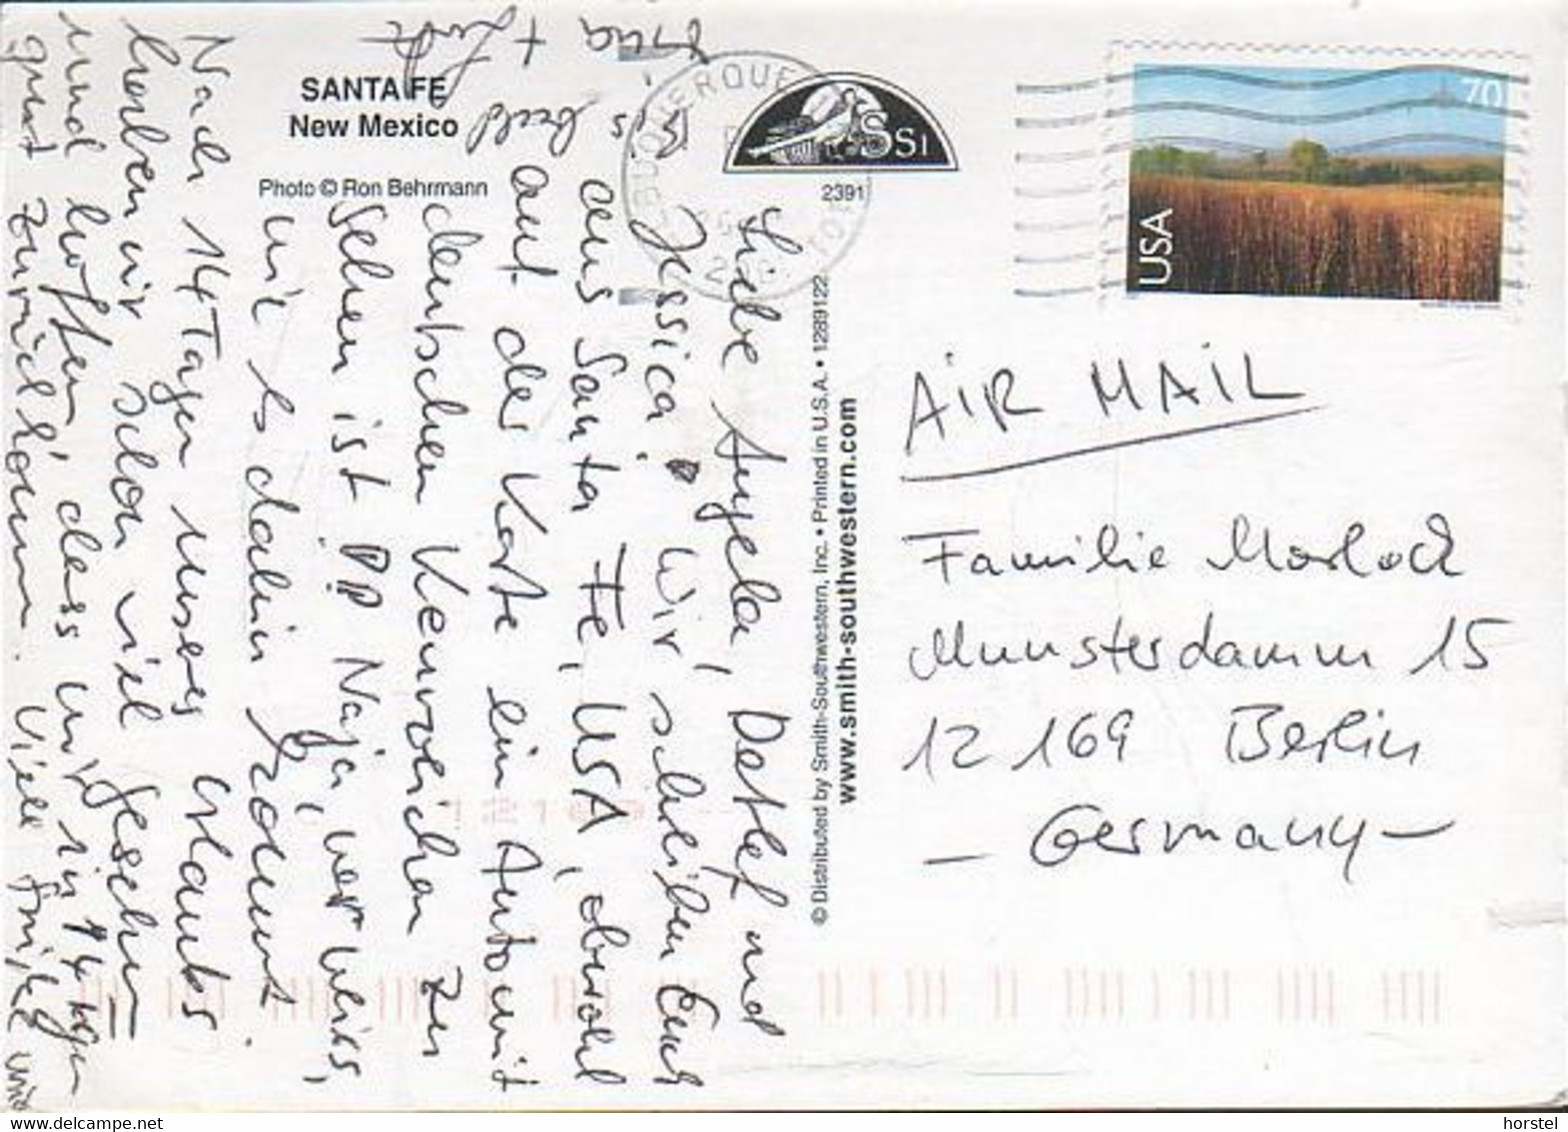 SANTA FE
New Mexico
Photo © Ron Behrmann
SSi
2391
70
USA
AIR MAIL
Familie Morlock
Munsterdamm 15
12169 Berlin
- Germany -
© Distributed by Smith-Southwestern, Inc. • Printed in U.S.A. • 1289122
www.smith-southwestern.com
Liebe Angela, Detlef und
Jessica! Wir schreiben Euch
aus Santa Fe, USA, obwohl
auf der Karte ein Auto mit
deutschen Kennzeichen zu
sehen ist. Naja, wer weiss,
wie es dahin kommt.
Nach 14 Tagen unseres Urlaubs
haben wir schon viel gesehen
und hoffen, dass wir in 14 Tagen
gesund zurückkommen. Viele